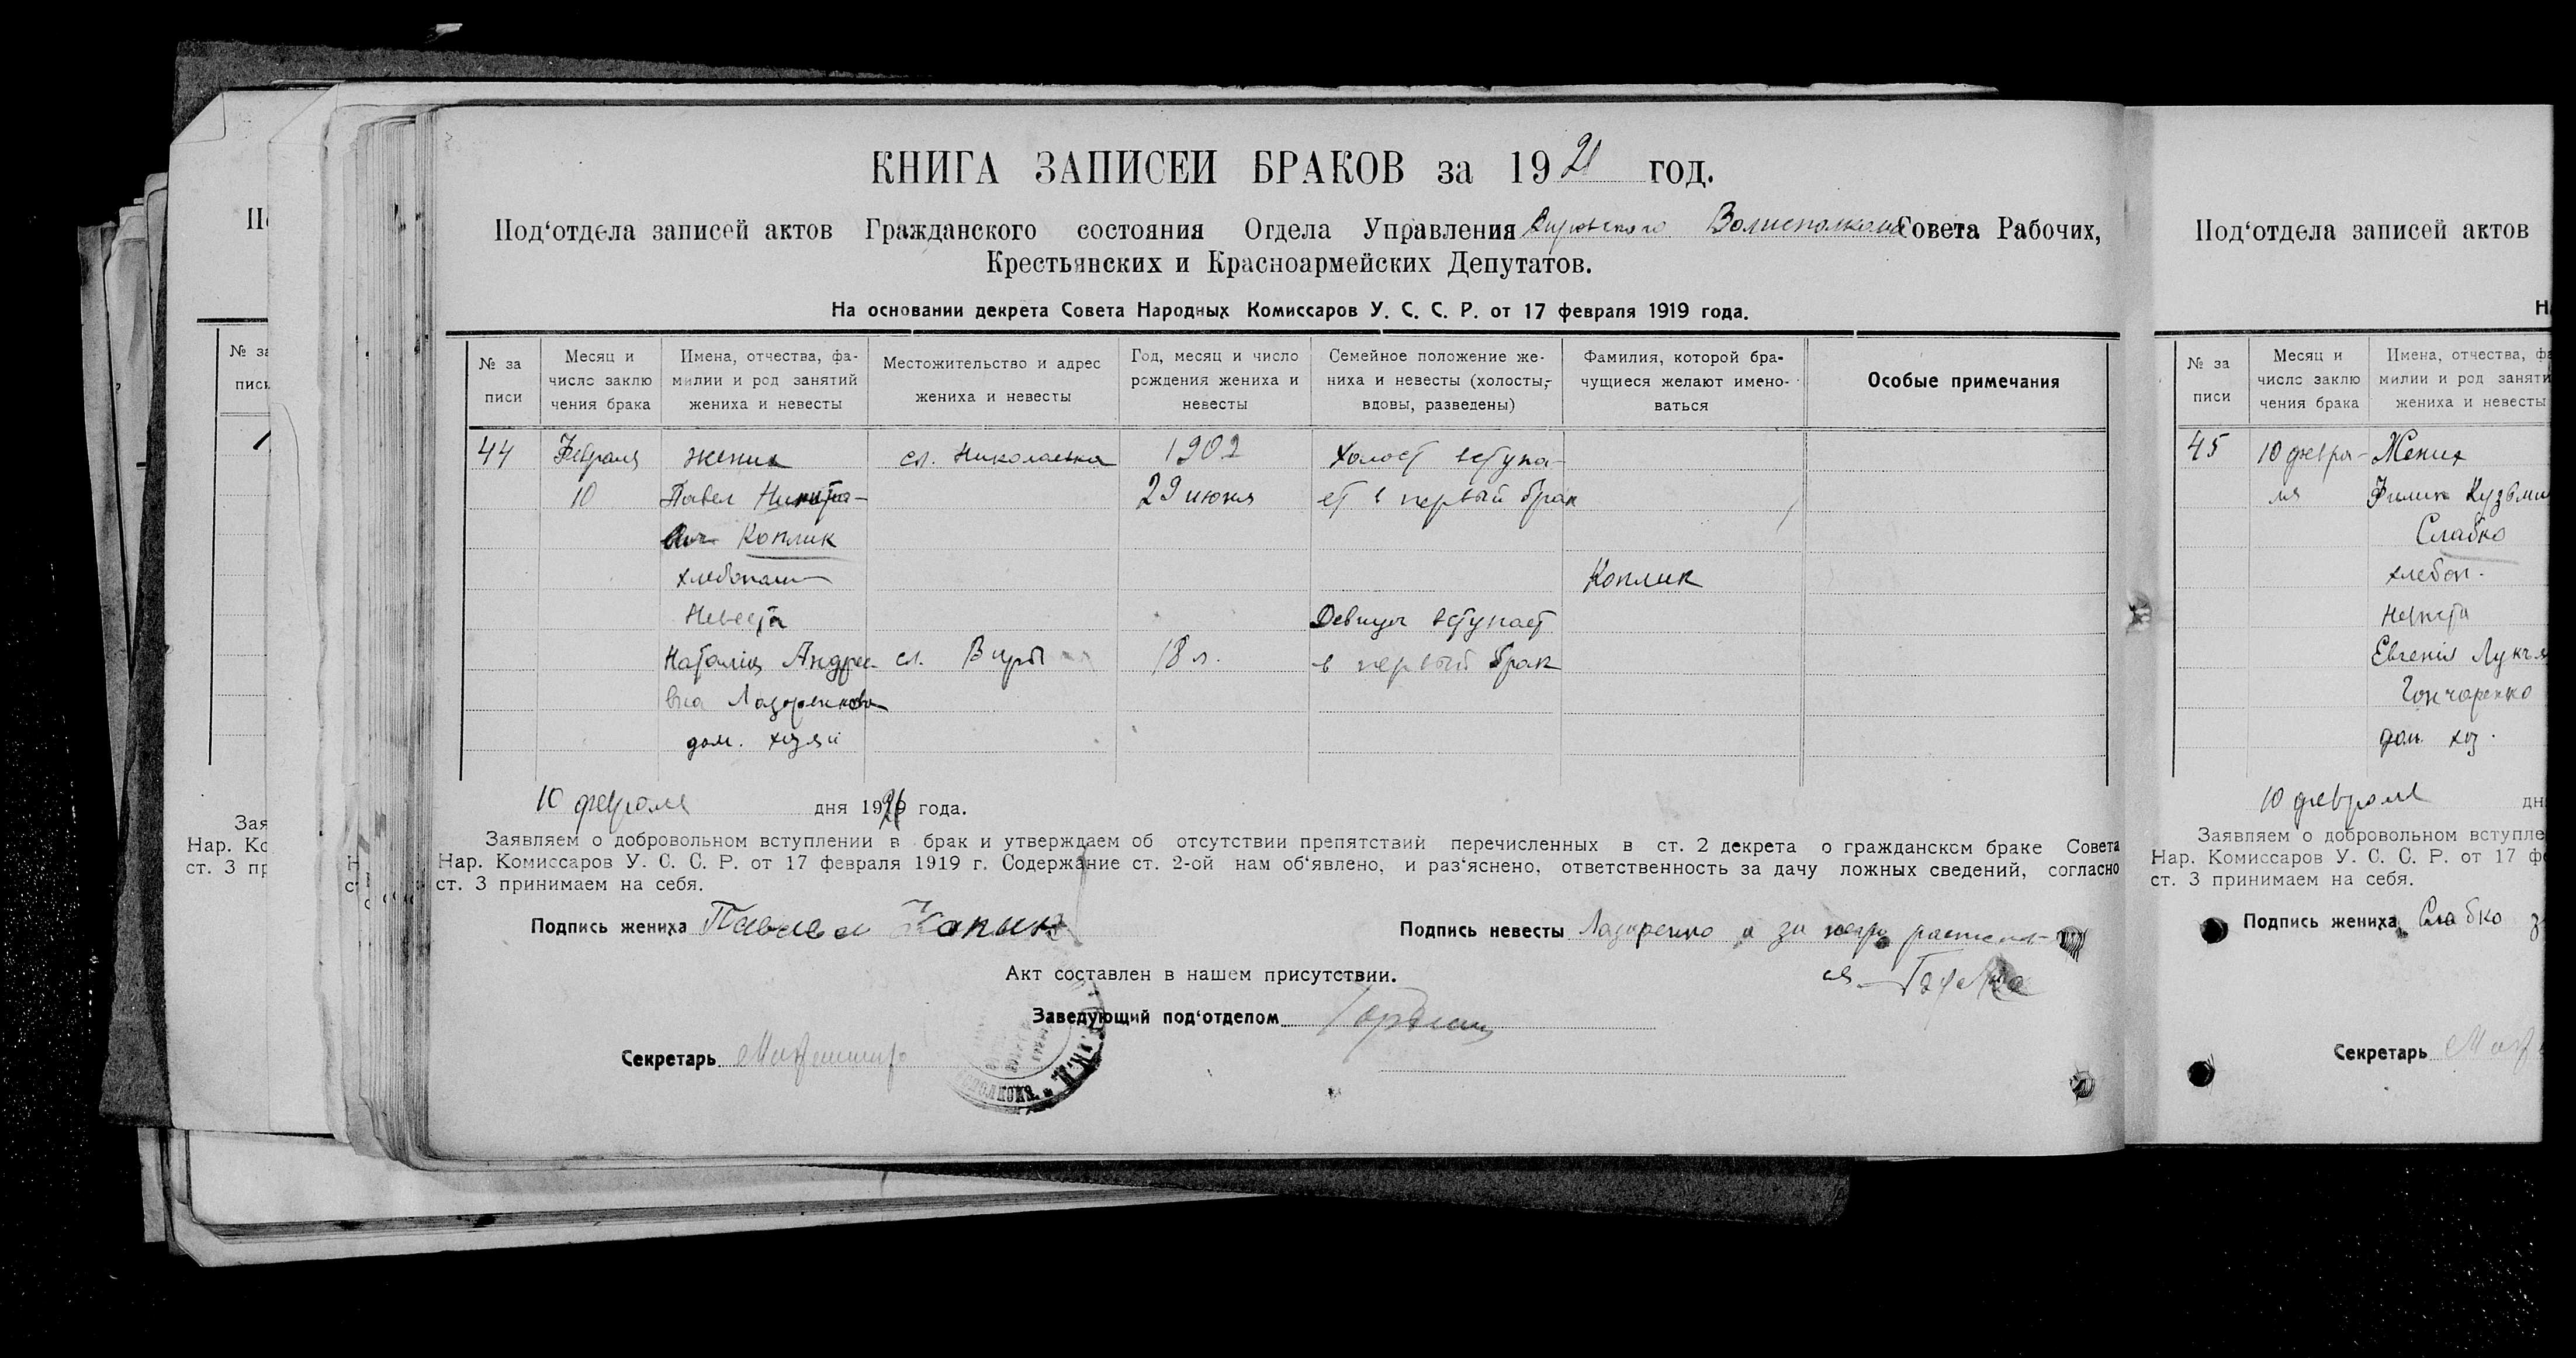 КНИГА ЗАПИСЕЙ БРАКОВ за 1921 год.
Под‘отдела записей актов Гражданского состояния Отдела Управления Волисполкома Совета Рабочих,
Крестьянских и Красноармейских Депутатов.
На основании декрета Совета Народных Комиссаров У. С. С. Р. от 17 февраля 1919 года.
№ за
писи
Месяц и
число заклю
чения брака
Имена, отчества, фа-
милии и род занятий
жениха и невесты
Местожительство и адрес
жениха и невесты
Год, месяц и число
рождения жениха и
невесты
Семейное положение же-
ниха и невесты (холосты,-
вдовы, разведены)
Фамилия, которой бра-
чущиеся желают имено-
ваться
Особые примечания
44 Февраля жених сл. Николаевка 1902 Холост вступа-
10 Павел Никита- 29 июня ет в первый брак
вич Коплик
хлебопаш
Коплик
Невеста Девица вступает
Наталия Андрее- сл. Виры 18 л. в первый брак
вна Лазаренкова
дом. хозяй
10 февраля дня 1921 года.
Заявляем о добровольном вступлении в брак и утверждаем об отсутствии препятствий перечисленных в ст. 2 декрета о гражданском браке Совета
Нар. Комиссаров У. С. С. Р. от 17 февраля 1919 г. Содержание ст. 2-ой нам об‘явлено, и раз‘яснено, ответственность за дачу ложных сведений, согласно
ст. 3 принимаем на себя.
Подпись жениха
Подпись невесты Лазаренко а за
Акт составлен в нашем присутствии.
Заведующий под‘отделом
Секретарь
Под‘отдела записей актов
Н
№ за
писи
Месяц и
число заклю
чения брака
Имена, отчества, фа
милии и род заняти
жениха и невесты
45 10 февра- Жених
ля Филип Кузьми
Слабко
хлебоп.
Невеста
Евгения Лукья
Гончаренко
дом. хоз.
10 февраля дн
Заявляем о добровольном вступле
Нар. Комиссаров У. С. С. Р. от 17 фе
ст. 3 принимаем на себя.
Подпись жениха Слабко
Секретарь
№ за
писи
Зая
Нар. Ко
ст. 3 пр